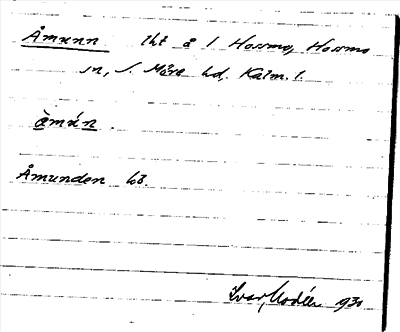 Åmxnn tht å l Hossmo, Hossmo
sn, S. Möre hd, Kalm. l.
åmx́n.
Åmunden lb.
Ivar Modéer 1930